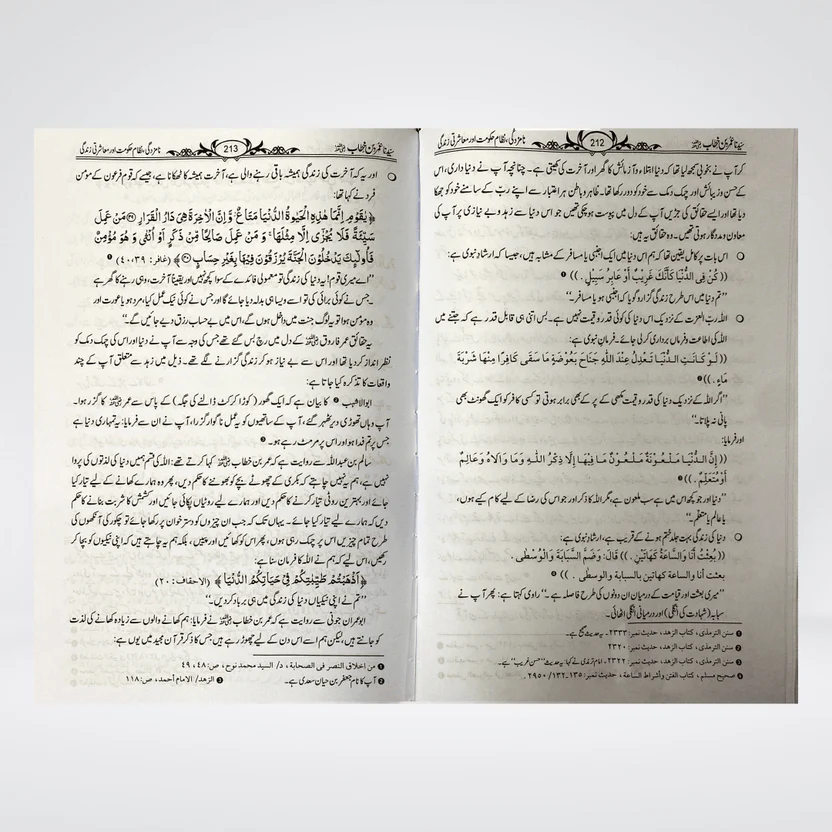 سیدنا عمر بن خطاب رضی اللہ عنہ
212
نامزدگی، نظام حکومت اور معاشرتی زندگی
کر آپ نے بخوبی سمجھ لیا تھا کہ دنیا ابتلاء و آزمائش کا گھر اور آخرت کی کھیتی ہے۔ چنانچہ آپ نے دنیا داری، اس
کے حسن و زیبائش اور چمک دمک سے خود کو دور رکھا تھا۔ ظاہر و باطن ہر اعتبار سے اپنے رب کے سامنے خود کو جھکا
دیا تھا اور ایسے حقائق کی جڑیں آپ کے دل میں پیوست ہوچکی تھیں جو اس دنیا سے زہد و بے نیازی پر آپ کی
معاون و مددگار ہوتی تھیں۔ وہ حقائق یہ ہیں:
اس بات پر کامل یقین تھا کہ ہم اس دنیا میں ایک اجنبی یا مسافر کے مشابہ ہیں، جیسا کہ ارشاد نبوی ہے:
((كُنْ فِى الدُّنْيَا كَأَنَّكَ غَرِيْبٌ أَوْ عَابِرُ سَبِيْلٍ .)) ❶
”تم دنیا میں اس طرح زندگی گزارو گویا کہ اجنبی ہو یا مسافر۔“
اللہ رب العزت کے نزدیک اس دنیا کی کوئی قدر و قیمت نہیں ہے۔ بس اتنی ہی قابل قدر ہے کہ جتنے میں
اللہ کی اطاعت و فرماں برداری کرلی جائے۔ فرمان نبوی ہے:
((لَوْ كَانَتِ الدُّنْيَا تَعْدِلُ عِنْدَ اللّٰهِ جَنَاحَ بَعُوْضَةٍ مَا سَقٰى كَافِرًا مِنْهَا شَرْبَةَ
مَاءٍ .)) ❷
”اگر اللہ کے نزدیک دنیا کی قدر و قیمت مکھی کے پر کے بھی برابر ہوتی تو کسی کافر کو ایک گھونٹ بھی
پانی نہ پلاتا۔“
اور فرمایا:
((إِنَّ الدُّنْيَا مَلْعُوْنَةٌ مَلْعُوْنٌ مَا فِيْهَا إِلَّا ذِكْرُ اللّٰهِ وَمَا وَالَاهُ وَعَالِمٌ
أَوْ مُتَعَلِّمٌ .)) ❸
”دنیا اور جو کچھ اس میں ہے سب ملعون ہے، مگر اللہ کا ذکر اور جو اس کی رضا کے لیے کام کیے ہوں،
یا عالم یا متعلم۔“
دنیا کی زندگی بہت جلد ختم ہونے کے قریب ہے، ارشاد نبوی ہے:
((بُعِثْتُ أَنَا وَالسَّاعَةُ كَهَاتَيْنِ .)) قَالَ: وَضَمَّ السَّبَّابَةَ وَالْوُسْطٰى .
بعثت أنا والساعة كهاتين بالسبابة والوسطى . )) ❹
”میری بعثت اور قیامت کے درمیان ان دونوں کی طرح فاصلہ ہے۔“ راوی کہتا ہے: پھر آپ نے
سبابہ (شہادت کی انگلی) اور درمیانی انگلی اٹھائی۔
❶ سنن الترمذی، کتاب الزهد، حدیث نمبر: ۲۳۳۳۔ یہ حدیث صحیح ہے۔
❷ سنن الترمذی، کتاب الزهد، حدیث نمبر: ۲۳۲۰
❸ سنن الترمذی، کتاب الزهد، حدیث نمبر: ۲۳۲۲۔ امام ترمذی نے کہا: یہ حدیث ”حسن غریب“ ہے۔
❹ صحیح مسلم، کتاب الفتن وأشراط الساعة، حدیث نمبر: ۱۳۵۔۱۳۲/۲۹۵۰ .
سیدنا عمر بن خطاب رضی اللہ عنہ
213
نامزدگی، نظام حکومت اور معاشرتی زندگی
اور یہ کہ آخرت کی زندگی ہمیشہ باقی رہنے والی ہے، آخرت ہمیشہ کا ٹھکانا ہے، جیسے کہ قوم فرعون کے مؤمن
فرد نے کہا تھا:
﴿يٰقَوْمِ اِنَّمَا هٰذِهِ الْحَيٰوةُ الدُّنْيَا مَتَاعٌ ۫ وَّاِنَّ الْاٰخِرَةَ هِيَ دَارُ الْقَرَارِ ۝۳۹ مَنْ عَمِلَ
سَيِّئَةً فَلَا يُجْزٰٓى اِلَّا مِثْلَهَا ۚ وَ مَنْ عَمِلَ صَالِحًا مِّنْ ذَكَرٍ اَوْ اُنْثٰى وَ هُوَ مُؤْمِنٌ
فَاُولٰٓئِكَ يَدْخُلُوْنَ الْجَنَّةَ يُرْزَقُوْنَ فِيْهَا بِغَيْرِ حِسَابٍ ۝۴۰﴾ (غافر: ۳۹-۴۰) ❶
”اے میری قوم! یہ دنیا کی زندگی تو معمولی فائدے کے سوا کچھ نہیں اور یقیناً آخرت، وہی رہنے کا گھر ہے
۔ جس نے کوئی برائی کی تو اسے ویسا ہی بدلہ دیا جائے گا اور جس نے کوئی نیک عمل کیا، مرد ہو یا عورت اور
وہ مؤمن ہوا تو یہ لوگ جنت میں داخل ہوں گے، اس میں بے حساب رزق دیے جائیں گے۔“
یہ حقائق عمر فاروق رضی اللہ عنہ کے دل میں رچ بس گئے تھے جس کی وجہ سے آپ نے دنیا اور اس کی چمک دمک کو
نظر انداز کردیا تھا اور اس سے بے نیاز ہو کر زندگی گزارنے لگے تھے۔ ذیل میں زہد سے متعلق آپ کے چند
واقعات کا تذکرہ کیا جاتا ہے:
ابوالاشہب ❷ کا بیان ہے کہ ایک گھور (کوڑا کرکٹ ڈالنے کی جگہ) کے پاس سے عمر رضی اللہ عنہ کا گزر ہوا۔
آپ وہاں تھوڑی دیر ٹھہر گئے، آپ کے ساتھیوں کو یہ عمل ناگوار گزرا، آپ نے ان سے فرمایا: یہ تمہاری دنیا ہے
جس پر تم فدا ہو اور اس پر مرمٹ رہے ہو۔ ❸
سالم بن عبداللہ سے روایت ہے کہ عمر بن خطاب رضی اللہ عنہ کہا کرتے تھے: اللہ کی قسم ہمیں دنیا کی لذتوں کی پروا
نہیں ہے، ہم یہ نہیں چاہتے کہ بکری کے چھوٹے بچے کو بھوننے کا حکم دیں، پھر وہ ہمارے کھانے کے لیے تیار کیا
جائے اور بہترین روٹی تیار کرنے کا حکم دیں اور ہمارے لیے روٹیاں پکائی جائیں اور کشمش کا شربت بنانے کا حکم
دیں کہ ہمارے لیے تیار کیا جائے۔ یہاں تک کہ جب ان چیزوں کو دسترخوان پر رکھا جائے تو چکور کی آنکھوں کی
طرح تمام چیزیں اس پر چمک رہی ہوں، پھر اس کو کھائیں اور پییں، بلکہ ہم یہ چاہتے ہیں کہ اپنی نیکیوں کو بچا کر
رکھیں، اس لیے کہ ہم نے اللہ کا فرمان سنا ہے:
﴿اَذْهَبْتُمْ طَيِّبٰتِكُمْ فِيْ حَيَاتِكُمُ الدُّنْيَا﴾ (الاحقاف: ۲۰)
”تم نے اپنی نیکیاں دنیا کی زندگی میں ہی برباد کردیں۔“
ابوعمران جونی سے روایت ہے کہ عمر بن خطاب رضی اللہ عنہ نے فرمایا: ہم کھانے والوں سے زیادہ کھانے کی لذت
کو جانتے ہیں، لیکن ہم اسے اس دن کے لیے چھوڑ رہے ہیں جس کا ذکر قرآن مجید میں یوں ہے:
❶ من اخلاق النصر فی الصحابة، د/ السید محمد نوح، ص: ۴۸، ۴۹
❷ آپ کا نام جعفر بن حیان سعدی ہے۔
❸ الزهد/ الامام أحمد، ص: ۱۱۸